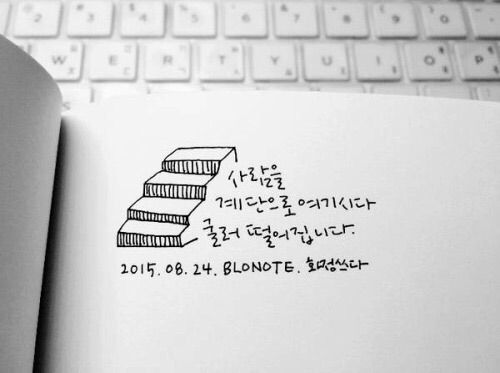 4 5 6 7 8 9 0
W E R T Y U I O P
사람을
계단으로 여기시다
굴러 떨어집니다.
2015. 08. 24. BLONOTE. 화정쓰다